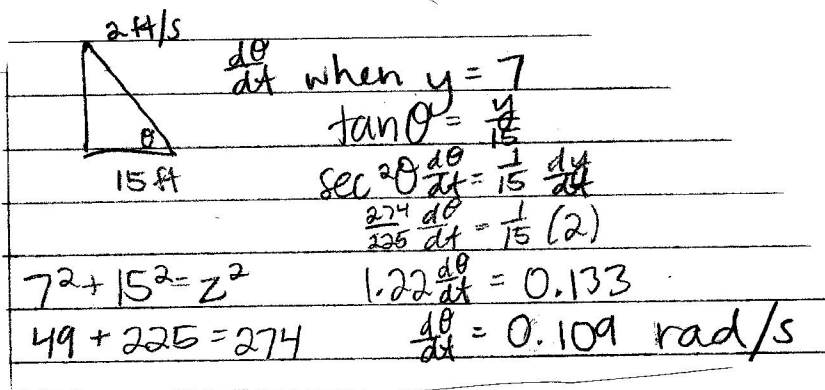 2 ft/s
dθ/dt when y = 7
tan θ = y/15
θ
15 ft
sec²θ dθ/dt = 1/15 dy/dt
274/225 dθ/dt = 1/15 (2)
7² + 15² = z²
1.22 dθ/dt = 0.133
49 + 225 = 274
dθ/dt = 0.109 rad/s